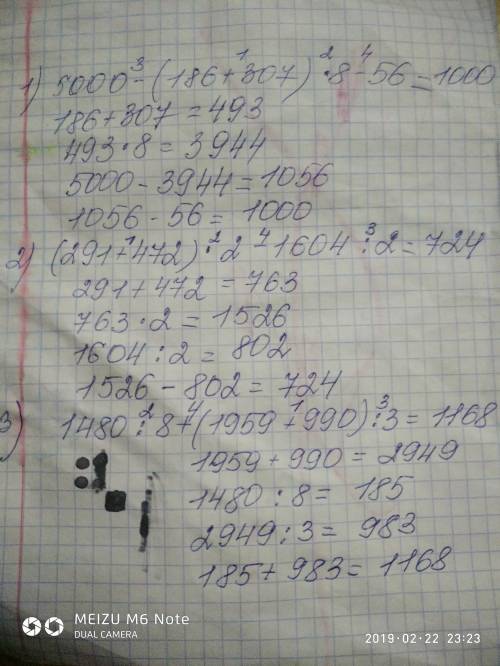 1) 5000 - (186 + 307) · 8 - 56 = 1000
186 + 307 = 493
493 · 8 = 3944
5000 - 3944 = 1056
1056 - 56 = 1000
2) (291 + 472) · 2 - 1604 : 2 = 724
291 + 472 = 763
763 · 2 = 1526
1604 : 2 = 802
1526 - 802 = 724
3) 1480 : 8 + (1959 + 990) : 3 = 1168
1959 + 990 = 2949
1480 : 8 = 185
2949 : 3 = 983
185 + 983 = 1168
MEIZU M6 Note
DUAL CAMERA
2019-02-22 23:23